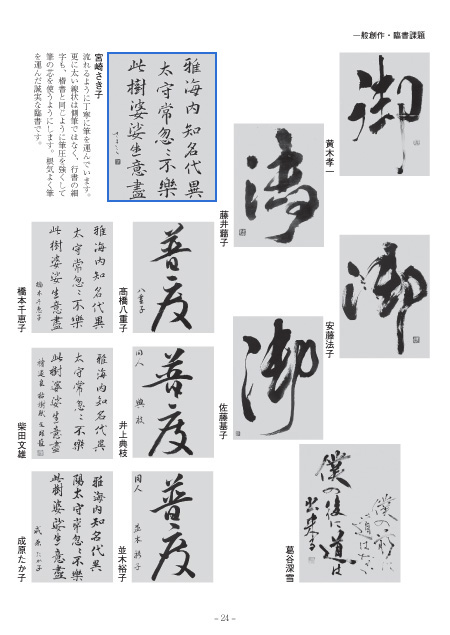 一般創作・臨書課題
御
黄木孝一
御
安藤法子
僕の前に
道はない
僕の後に
道は
出来る
葛谷深雪
濤
藤井籀子
御
佐藤基子
雅海内知名代異
太守常忽ミ不樂
此樹婆娑生意盡
宮崎さき子
流れるように丁寧に筆を運んでいます。
更に太い線状は側筆ではなく、行書の細
字も、楷書と同じように筆圧を強くして
筆の芯を使うようにします。根気よく筆
を運んだ誠実な臨書です。
普度
八重子
高橋八重子
雅海内知名代異
太守常忽ミ不樂
此樹婆娑生意盡
橋本千恵子
橋本千恵子
普度
同人
典枝
井上典枝
雅海内知名代異
太守常忽ミ不樂
此樹婆娑生意盡
柴田文雄
普度
同人
並木裕子
並木裕子
雅海内知名代異
陽太守常忽ミ不樂
此樹婆娑生意盡
成原たか子
成原たか子
- 24 -